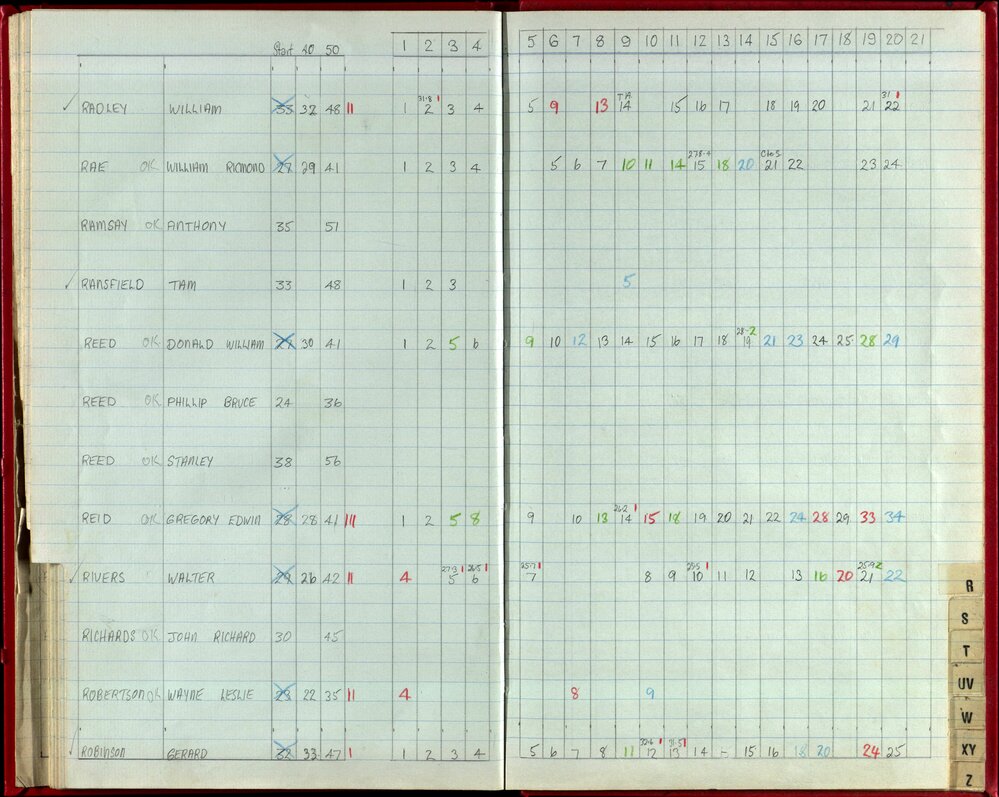 Start 40 50 1 2 3 4 5 6 7 8 9 10 11 12 13 14 15 16 17 18 19 20 21
31-8 1 T.A. 31 1
✓ RADLEY WILLIAM 33 32 48 11 1 2 3 4 5 9 13 14 15 16 17 18 19 20 21 22
278-4 Clos
RAE OK WILLIAM RICMOND 27 29 41 1 2 3 4 5 6 7 10 11 14 15 18 20 21 22 23 24
RAMSAY OK ANTHONY 35 51
✓ RANSFIELD TAM 33 48 1 2 3 5
28-2
REED OK DONALD WILLIAM 29 30 41 1 2 5 6 9 10 12 13 14 15 16 17 18 19 21 23 24 25 28 29
REED OK PHILLIP BRUCE 24 36
REED OK STANLEY 38 56
26-2 1
REID OK GREGORY EDWIN 28 28 41 111 1 2 5 8 9 10 13 14 15 18 19 20 21 22 24 28 29 33 34
27-3 1 26-5 1 25-7 1 1
✓ RIVERS WALTER 29 26 42 11 4 5 6 7 8 9 10 11 12 13 16 20 21 22
RICHARDS OK JOHN RICHARD 30 45
ROBERTSON OK WAYNE LESLIE 23 22 35 11 4 8 9
1 31-5 1
✓ ROBINSON GERARD 32 33 47 1 1 2 3 4 5 6 7 8 11 12 13 14 - 15 16 18 20 24 25
R
S
T
UV
W
XY
Z